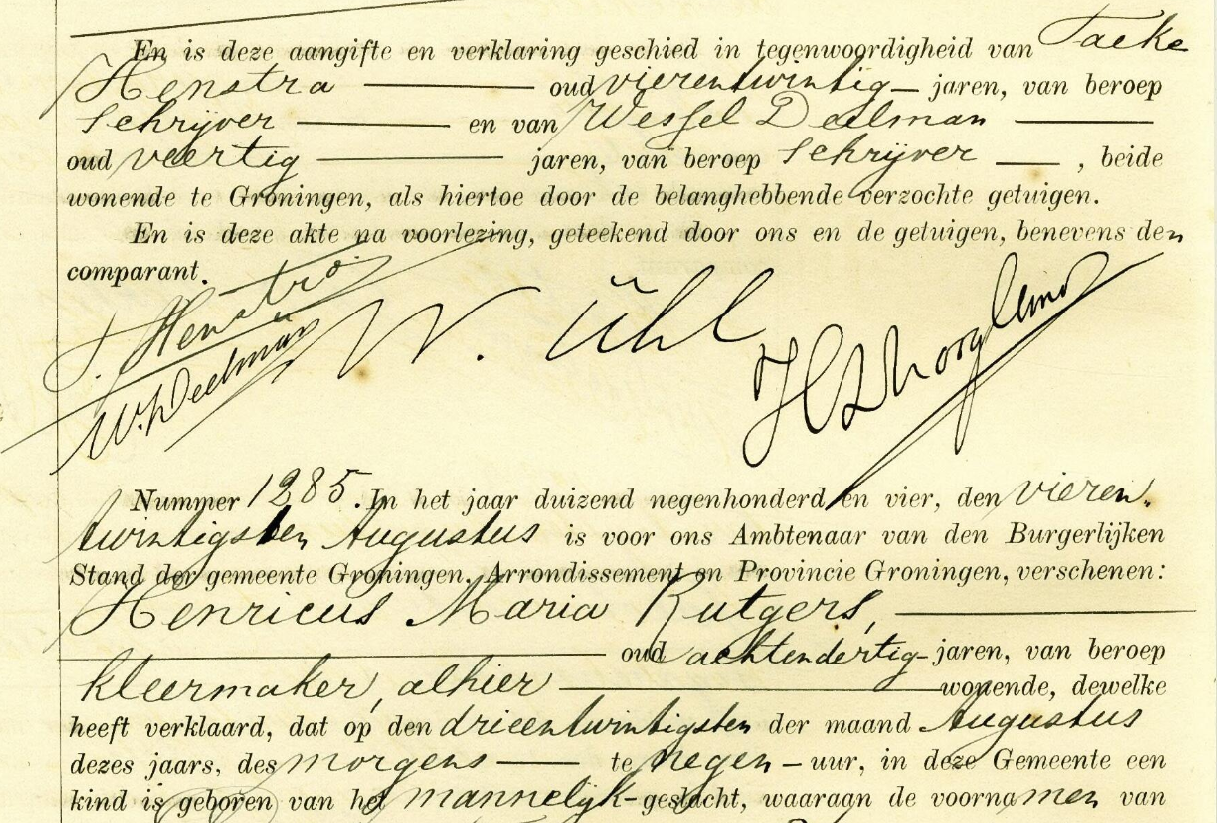 En is deze aangifte en verklaring geschied in tegenwoordigheid van Taeke
Henstra oud vierentwintig jaren, van beroep
schrijver en van Wessel Deelman
oud veertig jaren, van beroep schrijver , beide
wonende te Groningen, als hiertoe door de belanghebbende verzochte getuigen.
En is deze akte na voorlezing, geteekend door ons en de getuigen, benevens den
comparant.
T. Henstra
W. Uhl
W. Deelman
Nummer 1285. In het jaar duizend negenhonderd en vier, den vieren
twintigsten Augustus is voor ons Ambtenaar van den Burgerlijken
Stand der gemeente Groningen, Arrondissement en Provincie Groningen, verschenen:
Henricus Maria Rutgers,
oud achtendertig jaren, van beroep
kleermaker, alhier wonende, dewelke
heeft verklaard, dat op den drieentwintigsten der maand Augustus
dezes jaars, des morgens te negen uur, in deze Gemeente een
kind is geboren van het mannelijk geslacht, waaraan de voornamen van